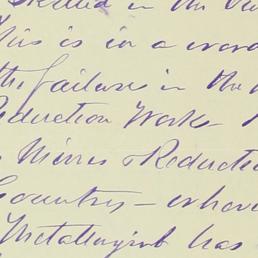 skilled in the
This is in a word
the failure in the
Reduction Works
Mines & Reductio
Country - where
Metallurgist has